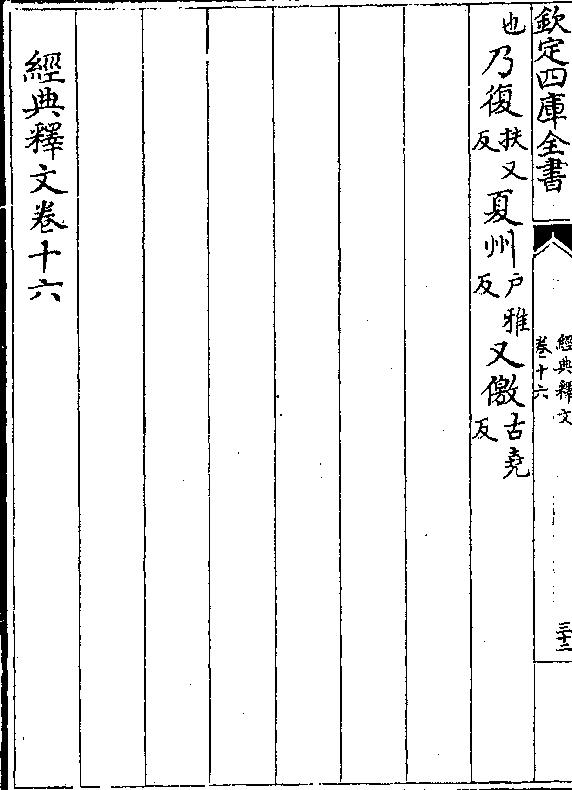 欽定四庫全書
經典釋文
卷十六
三十二
也乃復扶又反夏州戸雅反又儌古堯反
經典釋文卷十六